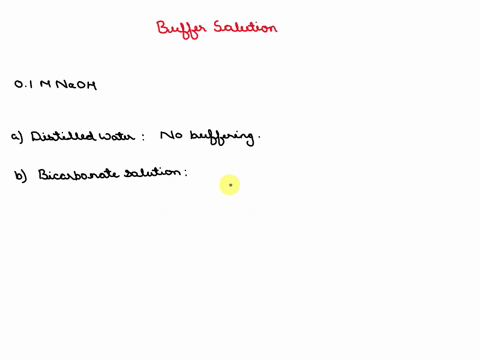 Buffer Solution
0.1 M NaOH
a) Distilled water : No buffering.
b) Bicarbonate solution :